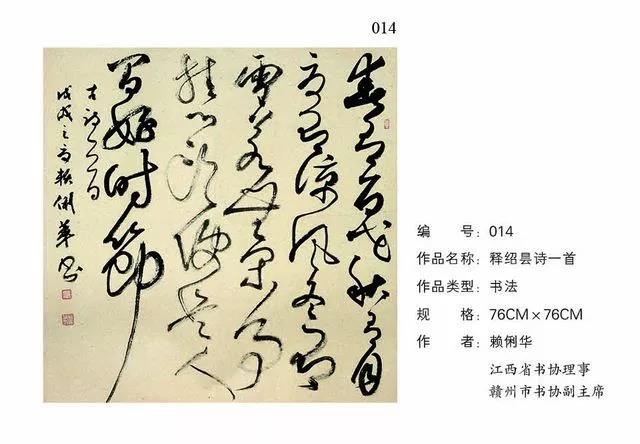 014
春有百花秋有月
夏有涼風冬有
雪若無閑事
挂心頭便是人
間好時節
古詩一首
戊戌之夏賴俐華書
编 号：014
作品名称：释绍昙诗一首
作品类型：书法
规 格：76CM×76CM
作 者：赖俐华
江西省书协理事
赣州市书协副主席